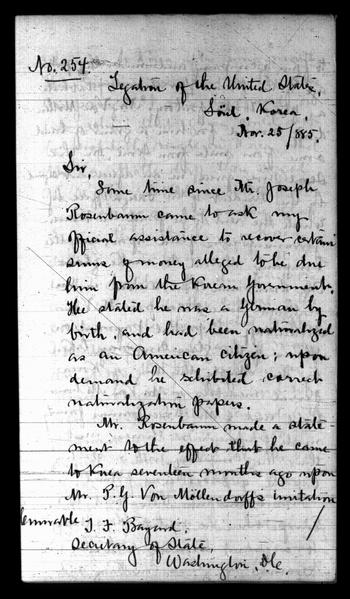 No. 254.
Legation of the United States,
Söul, Korea,
Nov. 25/1885.
Sir,
Some time since Mr. Joseph
Rosenbaum came to ask my
official assistance to recover certain
sums of money alleged to be due
him from the Korean Government.
He stated he was a German by
birth, and had been naturalized
as an American citizen; upon
demand he exhibited correct
naturalization papers.
Mr. Rosenbaum made a state-
ment to the effect that he came
to Korea seventeen months ago upon
Mr. P. G. Von Möllendorff's invitation
Honorable T. F. Bayard,
Secretary of State,
Washington, D.C.